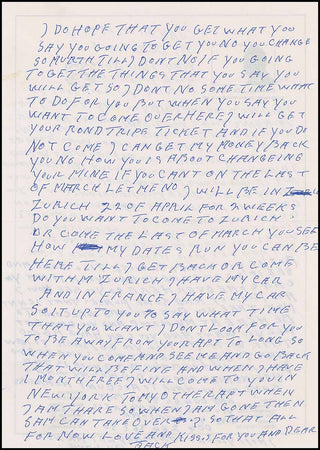 I DO HOPE THAT YOU GET WHAT YOU
SAY YOU GOING TO GET YOU NO YOU CHANGE
SO MUTH TILL I DONT NO IF YOU GOING
TO GET THE THINGS THAT YOU SAY YOU
WILL GET SO I DONT NO SOME TIME WHAT
TO DO FOR YOU BUT WHEN YOU SAY YOU
WANT TO COME OVER HERE I WILL GET
YOUR ROND TRIPE TICKET AND IF YOU DO
NOT COME I CAN GET MY MONEY BACK
YOU NO HOW YOU IS ABOUT CHANGEING
YOUR MINE IF YOU CANT ON THE LAST
OF MARCH LET ME NO I WILL BE IN
ZURICH 22 OF APRIL FOR 2 WEEKS
DO YOU WANT TO COME TO ZURICH.
OR COME THE LAST OF MARCH YOU SEE
HOW MY DATES RUN YOU CAN BE
HERE TILL I GET BACH OR COME
WITH M ZURICH I HAVE MY CAR
AND IN FRANCE I HAVE MY CAR
SO IT UP TO YOU TO SAY WHAT TIME
THAT YOU WANT I DONT LOOK FOR YOU
TO BE AWAY FROM YOUR APT TO LONG SO
WHEN YOU COME AND SEE ME AND GO BACK
THAT WILL BE FINE AND WHEN I HAVE
1 MONTH FREE I WILL COME TO YOU IN
NEW YORK TO MY OTHER APT WHEN
I AM THARE SO WHEN I AM GONE THEN
SAM CAN TAKE OVER SO THAT ALL
FOR NOW LOVE AND KISS'S FOR YOU AND DEAR
JACK